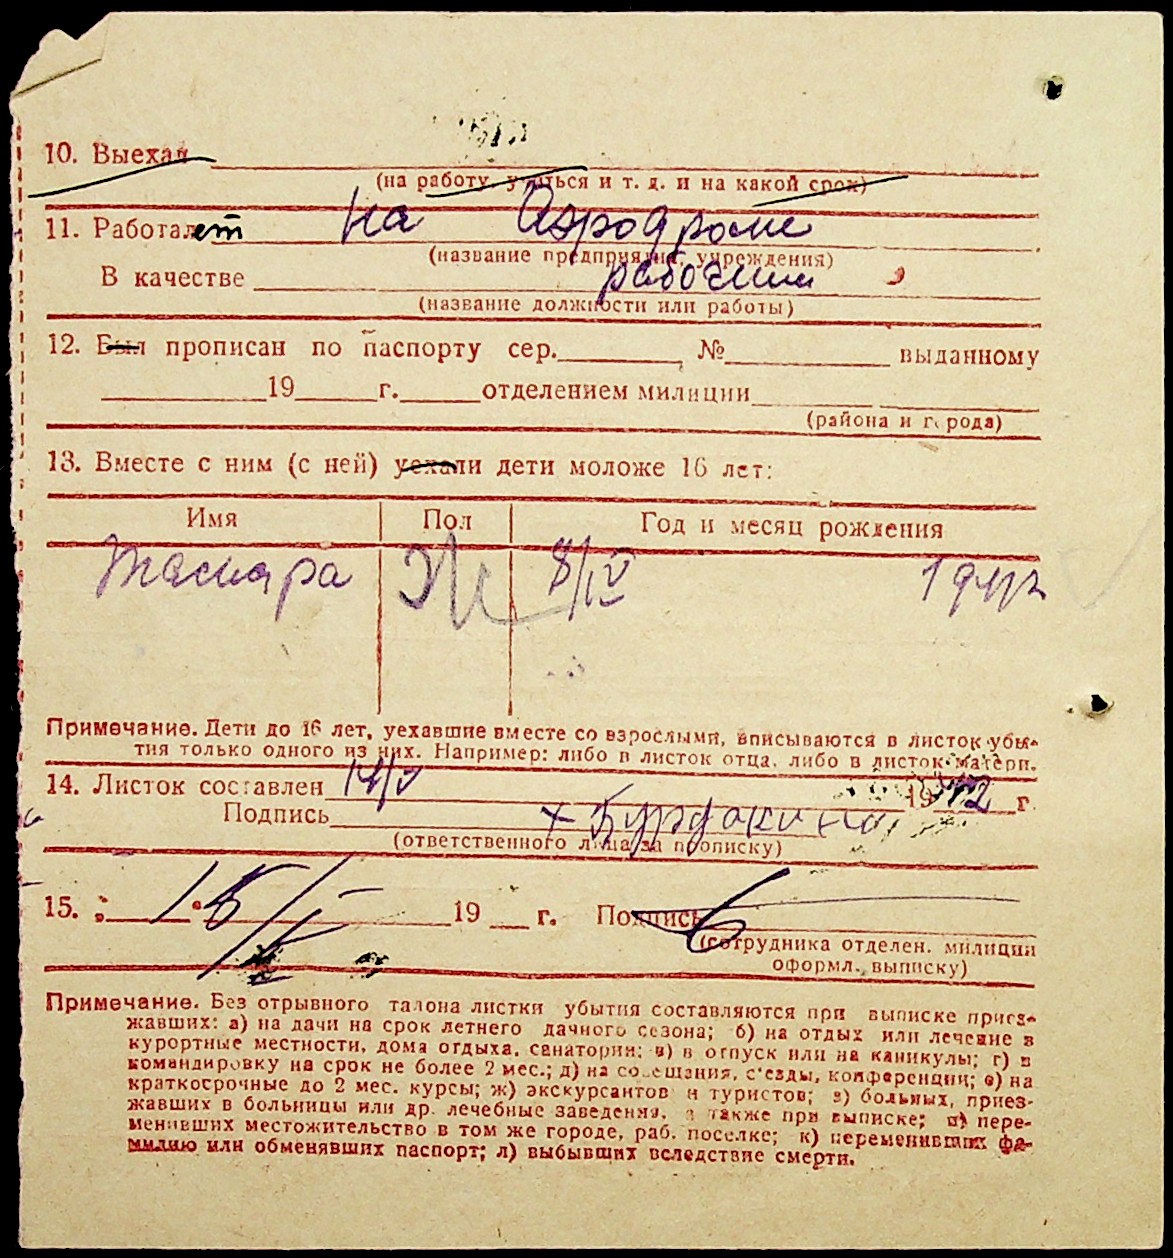 10. Выехал
(на работу, учиться и т. д. и на какой срок)
11. Работает на Аэродроме
(название предприятия, учреждения)
В качестве рабочим
(название должности или работы)
12. Был прописан по паспорту сер. № выданному
19 г. отделением милиции
(района и города)
13. Вместе с ним (с ней) уехали дети моложе 16 лет:
Имя Пол Год и месяц рождения
Тамара Ж 8/IV
Примечание. Дети до 16 лет, уехавшие вместе со взрослыми, вписываются в листок убы-
тия только одного из них. Например: либо в листок отца, либо в листок матери.
14. Листок составлен 14/V 1942 г.
Подпись + Бурдакина
(ответственного лица за прописку)
15. 15/V 19 г. Подпись
(сотрудника отделен. милиции
оформл. выписку)
Примечание. Без отрывного талона листки убытия составляются при выписке приез-
жавших: а) на дачи на срок летнего дачного сезона; б) на отдых или лечение в
курортные местности, дома отдыха, санатории; в) в отпуск или на каникулы; г) в
командировку на срок не более 2 мес.; д) на совещания, с'езды, конференции; е) на
краткосрочные до 2 мес. курсы; ж) экскурсантов и туристов; з) больных, приез-
жавших в больницы или др. лечебные заведения, а также при выписке; и) пере-
менивших местожительство в том же городе, раб. поселке; к) переменивших фа-
милию или обменявших паспорт; л) выбывших вследствие смерти.